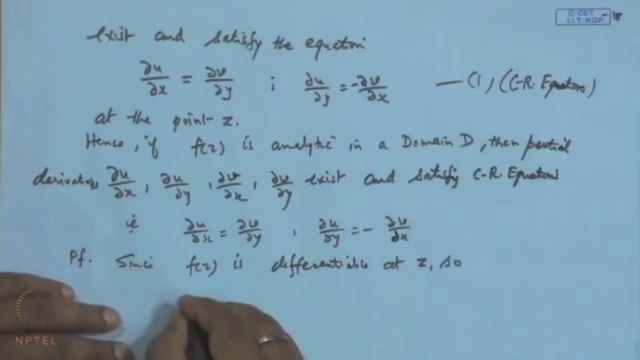 © CET
I.I.T. KGP
exist and satisfy the equation
∂u/∂x = ∂v/∂y ; ∂u/∂y = -∂v/∂x — (1) (C-R. Equations)
at the point z.
Hence, if f(z) is analytic in a Domain D, then partial
derivatives ∂u/∂x, ∂u/∂y, ∂v/∂x, ∂v/∂y exist and satisfy C-R. Equations
ie ∂u/∂x = ∂v/∂y, ∂u/∂y = - ∂v/∂x
Pf. Since f(z) is differentiable at z, so
NPTEL